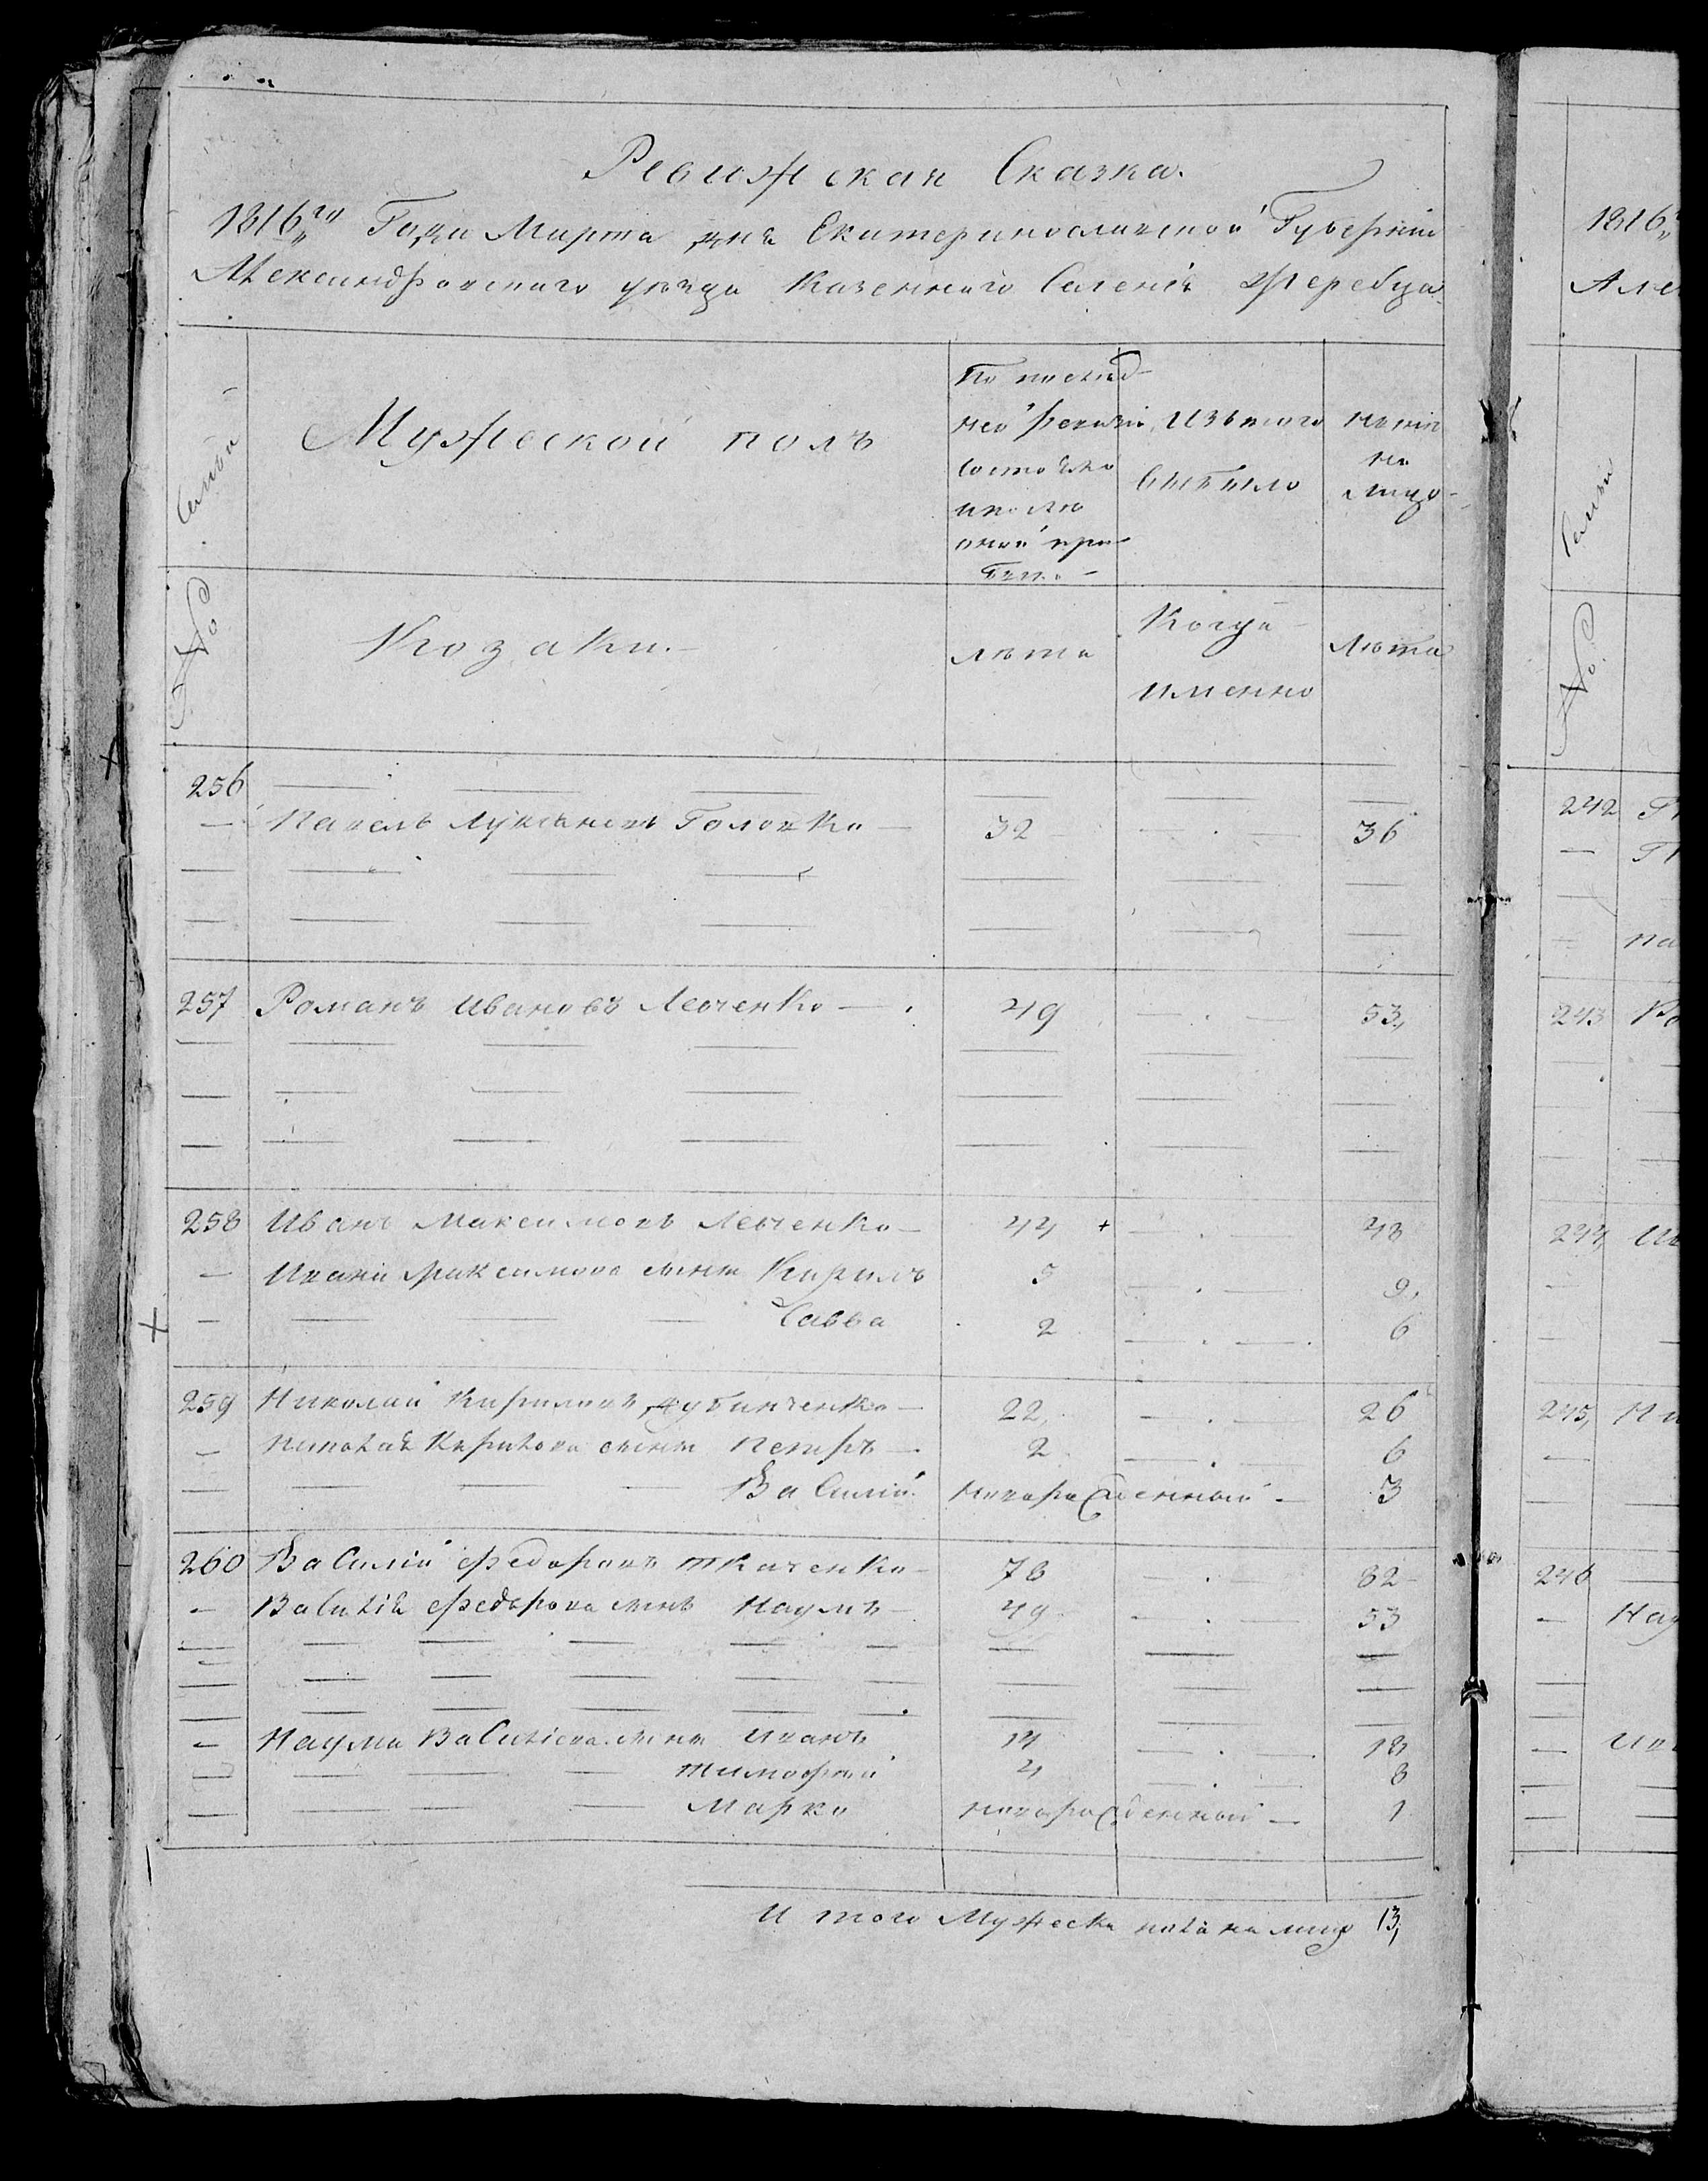 Ревижская Сказка.
1816го Года Марта дня Екатеринославской Губернии
Александровского уезда Казенного Селения Жеребца
Семьи
Мужеской полъ
По послед-
ней ревизіи
состояло
и после
оной при-
было
Изъ того
выбыло
Ныне
на
лицо
№
Козаки.
лета
Когда
именно
Лета
256
— Павелъ Лукьяновъ Головко — 32 — . — 36
257 Романъ Ивановъ Левченко — 49 — . — 53,
258 Иванъ Максимовъ Левченко — 44 + — . — 48
— Ивана Максимова сыны Кирилъ 5 — . — 9,
— — — — Савва 2 — . — 6
259 Николай Кириловъ Дубинченко — 22, — . — 26
— Николая Кирилова сыны Петръ — 2 — . — 6
— — — — Василий новорожденный — 3
260 Василій Федоровъ Ткаченко — 78 — . — 82
— Василія Федорова сынъ Наумъ — 49 — . — 53
— Наума Василіева сыны Иванъ 14 — . — 18,
— — — — Тимофей 4 — . — 8
— — — — Марко новорожденный — 1
И того Мужеска пола на лицо 13,
1816
Але
Семьи
№
242
243 Ро
244, Ив
245, Ни
246
— Нау
— Ив